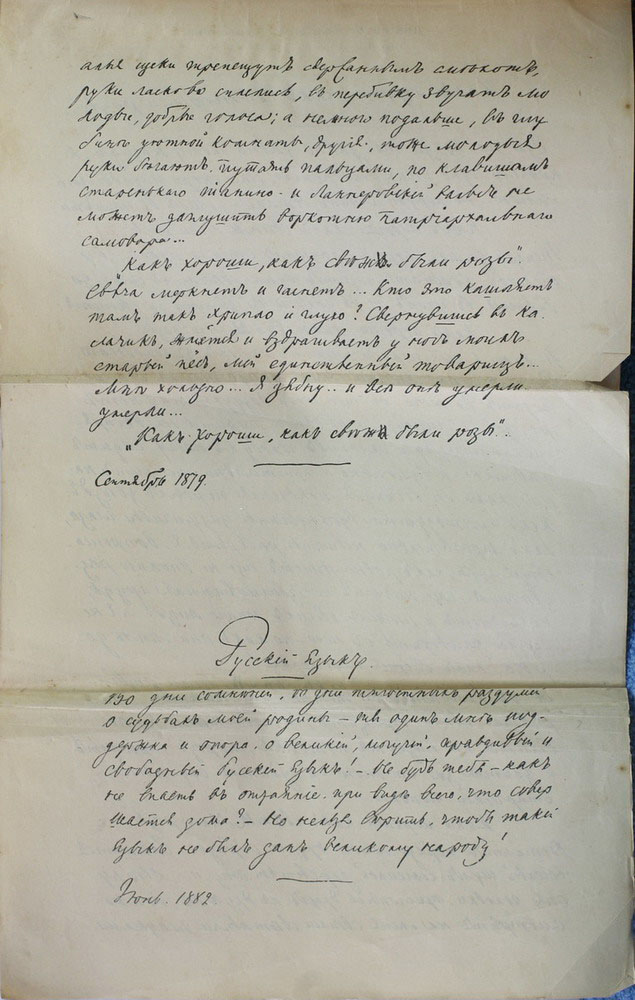 алыя щеки трепещутъ сдержаннымъ смѣхомъ,
руки ласково сплелись, въ перебивку звучатъ мо
лодые, добрые голоса; а немного подальше, въ глу
бинѣ уютной комнаты, другія, тоже молодыя
руки бѣгаютъ, путаясь пальцами, по клавишамъ
старенькаго піанино – и Ланнеровскій вальсъ не
можетъ заглушить воркотню патріархальнаго
самовара...
„Какъ хороши, какъ свѣжи были розы“.
Свѣча меркнетъ и гаснетъ... Кто это кашляетъ
тамъ такъ хрипло и глухо? Свернувшись въ ка
лачикъ, жмется и вздрагиваетъ у ногъ моихъ
старый пёсъ, мой единственный товарищъ...
Мнѣ холодно... Я зябну.. и всѣ онѣ умерли
умерли...
„Какъ хороши, какъ свѣжи были розы“.
Сентябрь 1879.
Русскій Языкъ.
Во дни сомнѣній, во дни тягостныхъ раздумій
о судьбахъ моей родины – ты одинъ мнѣ под-
держка и опора, о великій, могучій, правдивый и
свободный Русскій Языкъ! – Не будь тебя – какъ
не впасть въ отчаяніе, при видѣ всего, что совер
шается дома? – Но нельзя вѣрить, чтобъ такой
языкъ не былъ данъ великому народу!
Іюнь. 1882